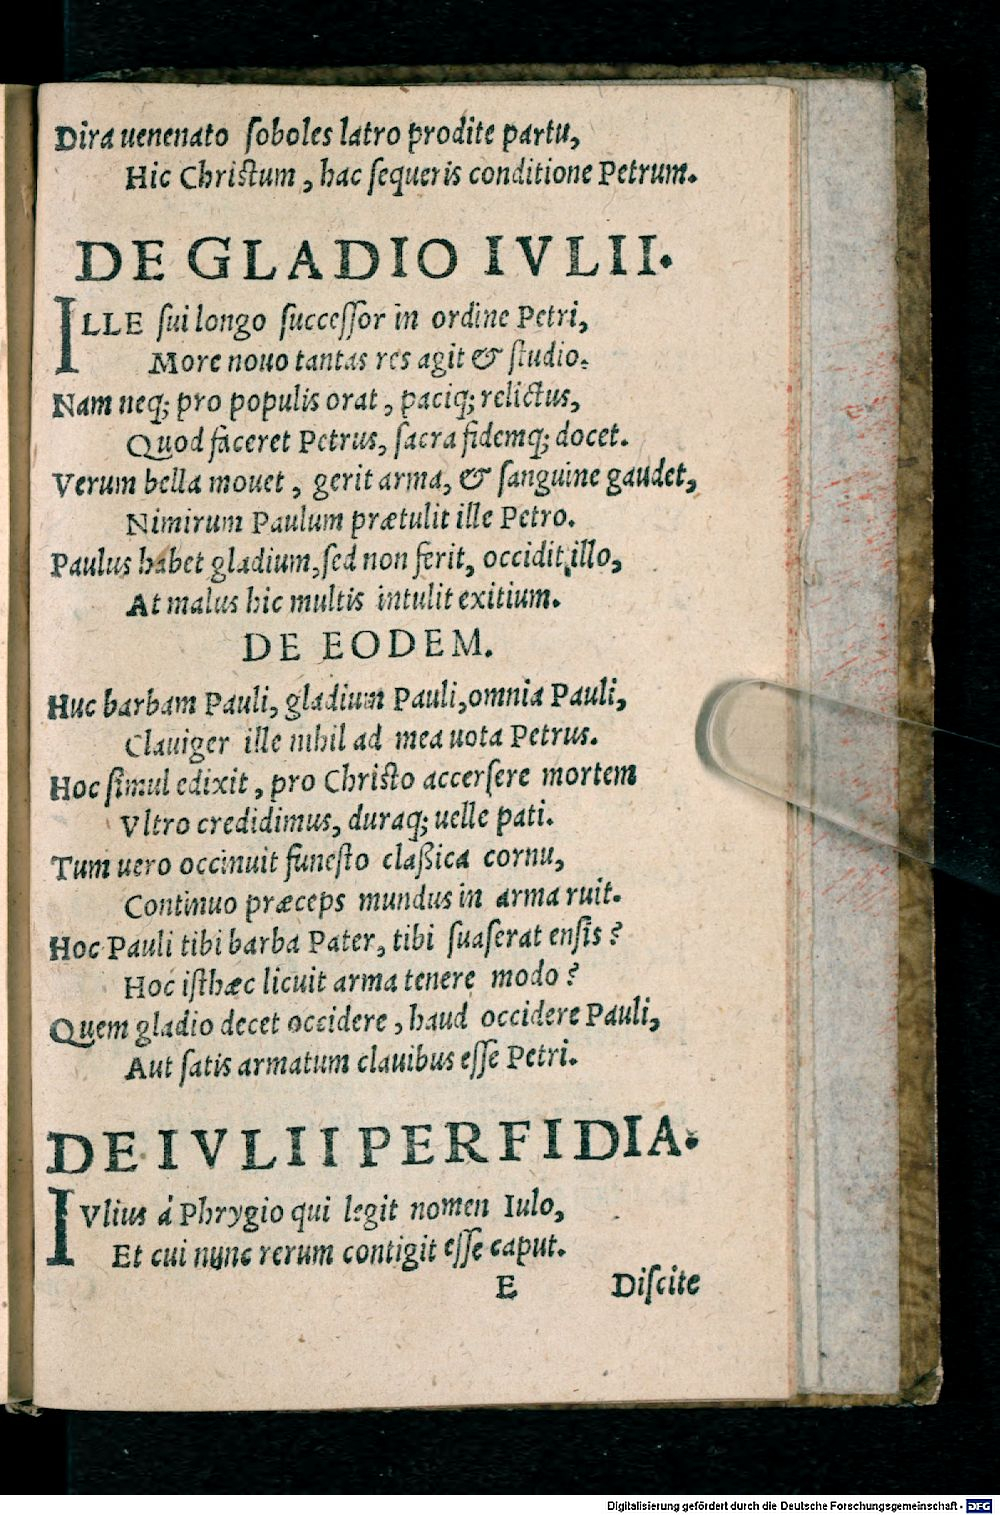 Dira uenenato ſoboles latro prodite partu,
Hic Chriſtum, hac ſequeris conditione Petrum.
DE GLADIO IVLII.
ILLE ſui longo ſucceſſor in ordine Petri,
More nouo tantas res agit & ſtudio.
Nam neq; pro populis orat, paciq; relictus,
Quod faceret Petrus, ſacra fidemq; docet.
Verum bella mouet, gerit arma, & ſanguine gaudet,
Nimirum Paulum prætulit ille Petro.
Paulus habet gladium, ſed non ferit, occidit illo,
At malus hic multis intulit exitium.
DE EODEM.
Huc barbam Pauli, gladium Pauli, omnia Pauli,
Clauiger ille nihil ad mea uota Petrus.
Hoc ſimul edixit, pro Chriſto accerſere mortem
Vltro credidimus, duraq; uelle pati.
Tum uero occinuit funeſto claßica cornu,
Continuo præceps mundus in arma ruit.
Hoc Pauli tibi barba Pater, tibi ſuaſerat enſis?
Hoc iſthæc licuit arma tenere modo?
Quem gladio decet occidere, haud occidere Pauli,
Aut ſatis armatum clauibus eſſe Petri.
DE IVLII PERFIDIA.
IVlius á Phrygio qui legit nomen Iulo,
Et cui nunc rerum contigit eſſe caput.
E Diſcite
Digitalisierung gefördert durch die Deutsche Forschungsgemeinschaft - DFG